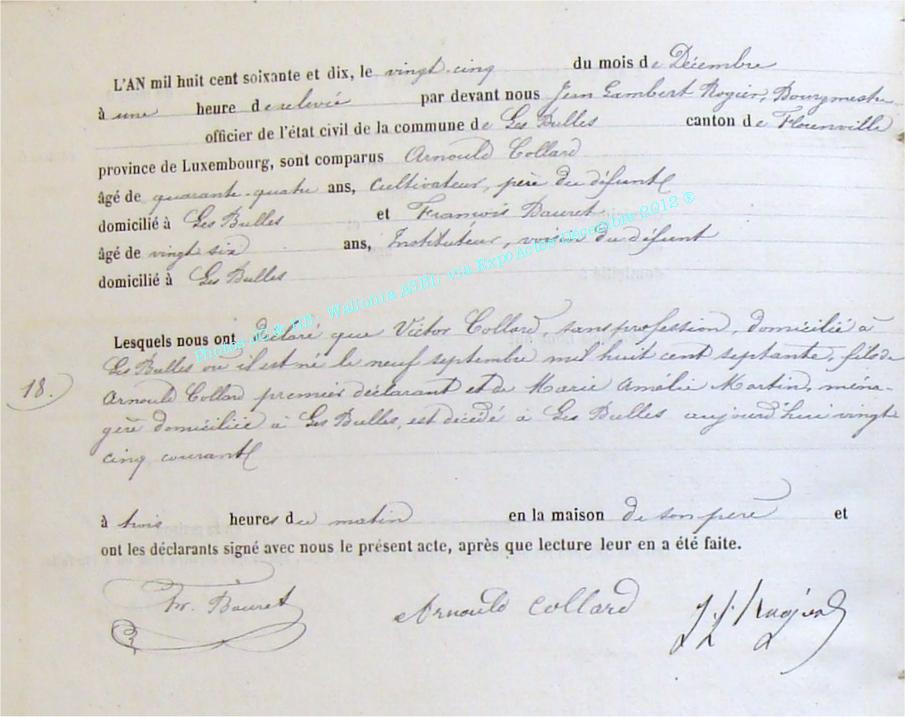 L'AN mil huit cent soixante et dix, le vingt-cinq du mois de Décembre
à une heure de relevée par devant nous Jean Lambert Rogier, Bourgmestre
officier de l'état civil de la commune de Les Bulles canton de Florenville
province de Luxembourg, sont comparus Arnould Collard
âgé de quarante-quatre ans, cultivateur, père du défunt
domicilié à Les Bulles et François Bauret
âgé de vingt six ans, Instituteur, voisin du défunt
domicilié à Les Bulles
photos de & HB. Wallonia ASBL via ExpoActes Décembre 2012 ®
Lesquels nous ont déclaré que Victor Collard, sans profession, domicilié à
Les Bulles où il est né le neuf septembre mil huit cent septante, fils de
18.
Arnould Collard premier déclarant et de Marie Amélie Martin, ména-
gère domiciliée à Les Bulles, est décédé à Les Bulles aujourd'hui vingt
cinq courant
à trois heures du matin en la maison de son père et
ont les déclarants signé avec nous le présent acte, après que lecture leur en a été faite.
Fr. Bauret Arnould Collard J. L. Rogier